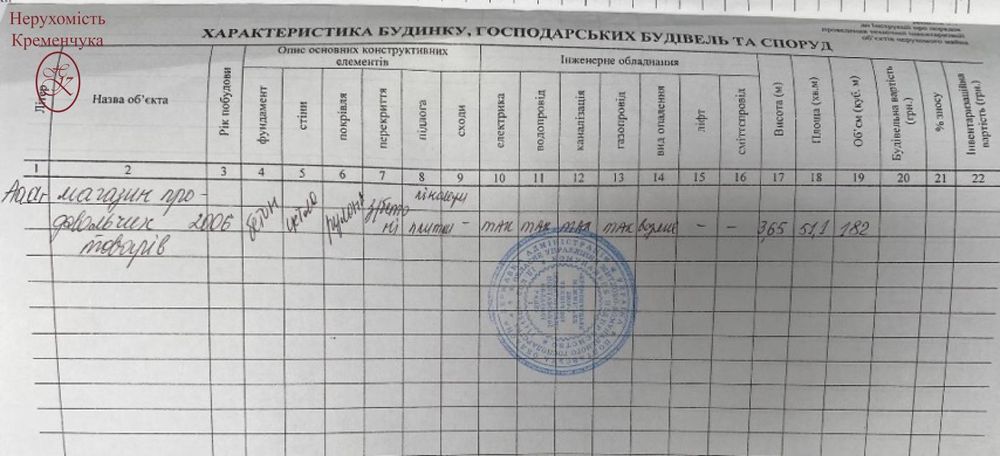 Нерухомість
Кременчука
ХАРАКТЕРИСТИКА БУДИНКУ, ГОСПОДАРСЬКИХ БУДІВЕЛЬ ТА СПОРУД
до Інструкції про порядок
проведення технічної інвентаризації
об'єктів нерухомого майна
Опис основних конструктивних
елементів
Інженерне обладнання
Літер
Назва об'єкта
Рік побудови
фундамент
стіни
покрівля
перекриття
підлога
сходи
електрика
водопровід
каналізація
газопровід
вид опалення
ліфт
сміттєспровід
Висота (м)
Площа (кв.м)
Об'єм (куб. м)
Будівельна вартість
(грн.)
% зносу
Інвентаризаційна
вартість (грн.)
1 2 3 4 5 6 7 8 9 10 11 12 13 14 15 16 17 18 19 20 21 22
магазин про-
довольчих 2006 бетон рулонні плитка - так так так так - - 3,65 51,1 182
товарів